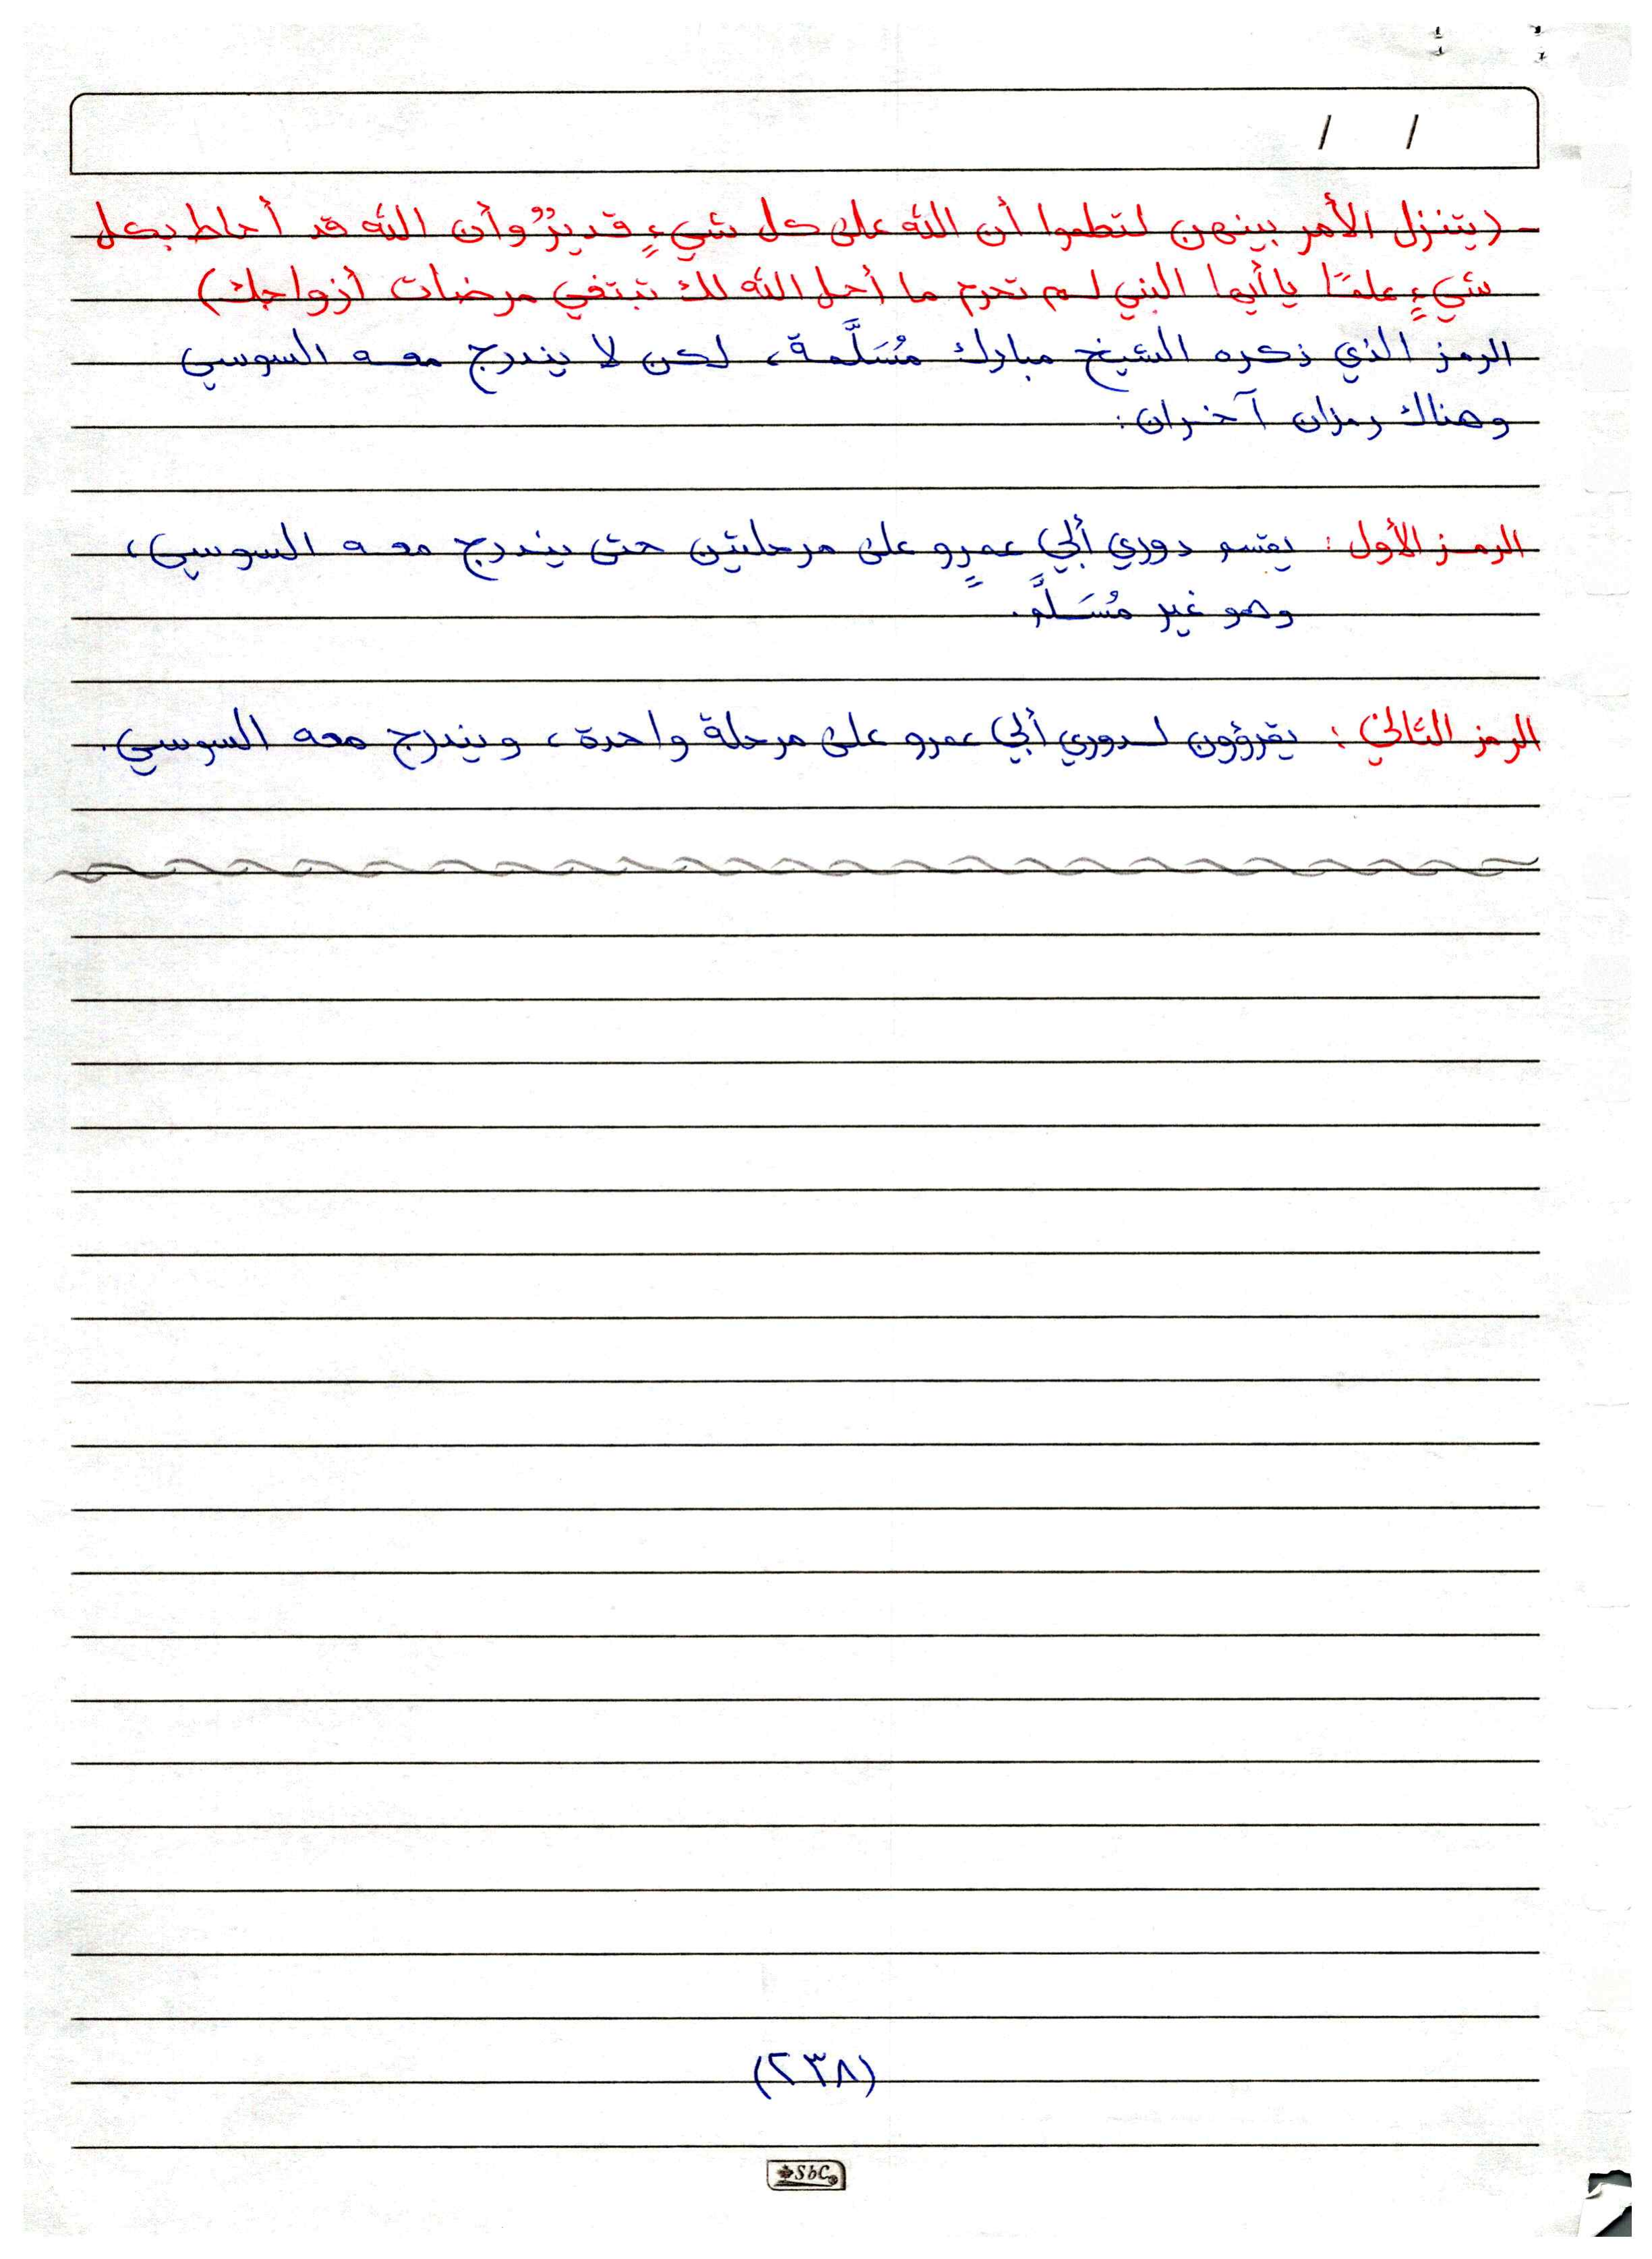 / /
- (يتنزل الأمر بينهن لتعلموا أن الله على كل شيءٍ قديرٌ وأن الله قد أحاط بكل
شيءٍ علمًا يا أيها النبي لم تحرم ما أحل الله لك تبتغي مرضات أزواجك)
الرمز الذي ذكره الشيخ مبارك مُسَلَّمة، لكن لا يندرج معه السوسي
وهناك رمزان آخران:
الرمز الأول: يقسم دوري أبي عمرٍو على مرحلتين حتى يندرج معه السوسي،
وهو غير مُسَلَّم.
الرمز الثاني: يقرؤون لدوري أبي عمرو على مرحلة واحدة، ويندرج معه السوسي.
(٢٣٨)
SbC